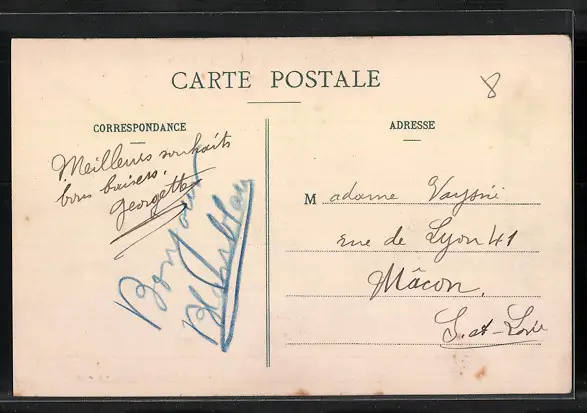 CARTE POSTALE
8
CORRESPONDANCE
Meilleurs souhaits
bons baisers.
Georgette
Bonjour
ADRESSE
Madame
rue de Lyon 41
Mâcon.
S. et - Loire